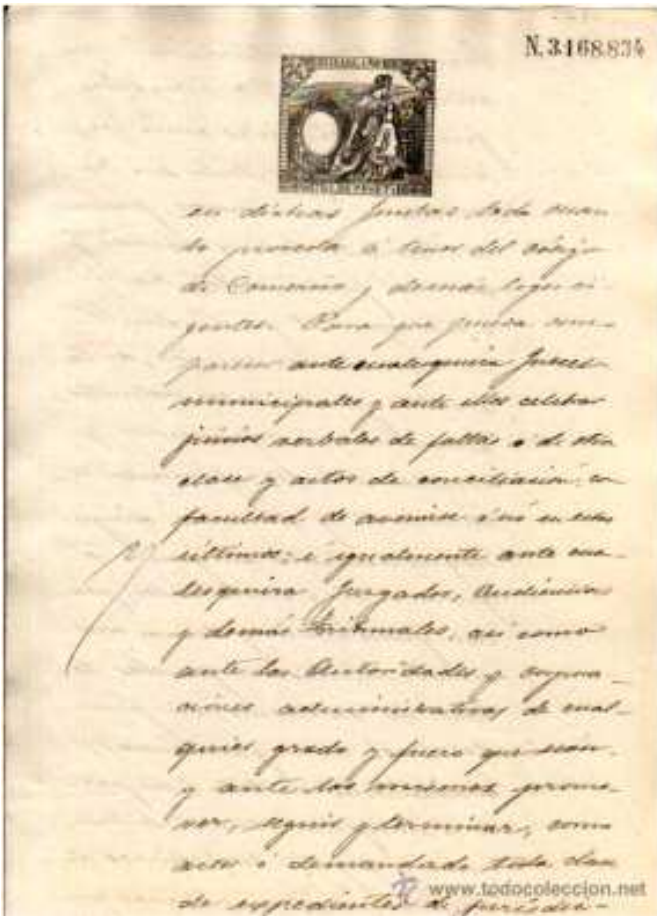 N.3.168.834
en dichas Juntas todo cuan-
to proceda á tenor del Código
de Comercio y demás leyes vi-
gentes. Para que pueda com-
parecer ante cualesquiera Jueces
municipales y ante ellos celebrar
juicios verbales de faltas ó de otra
clase y actos de conciliación, con
facultad de avenirse ó nó en estos
últimos; é igualmente ante cua-
lesquiera Juzgados, Audiencias
y demás Tribunales, así como
ante las Autoridades y corpora-
ciones administrativas de cual-
quier grado y fuero que sean,
y ante los mismos promo-
ver, seguir y terminar, como
actor ó demandado toda clase
de expedientes de jurisdic-
www.todocoleccion.net